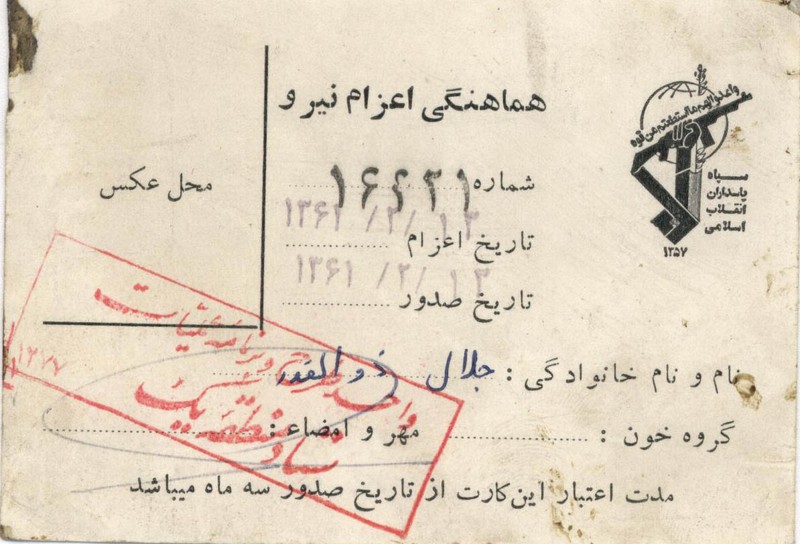 هماهنگی اعزام نیرو
واعدوا لهم ما استطعتم من قوة
سپاه
پاسداران
انقلاب
اسلامی
۱۳۵۷
محل عکس
شماره
تاریخ اعزام ۱۳۶۱/۲/۱۳
تاریخ صدور ۱۳۶۱/۲/۱۳
نام و نام خانوادگی : جلال ذوالقدر
گروه خون : مهر و امضاء :
مدت اعتبار این کارت از تاریخ صدور سه ماه میباشد
ستاد منطقه یک